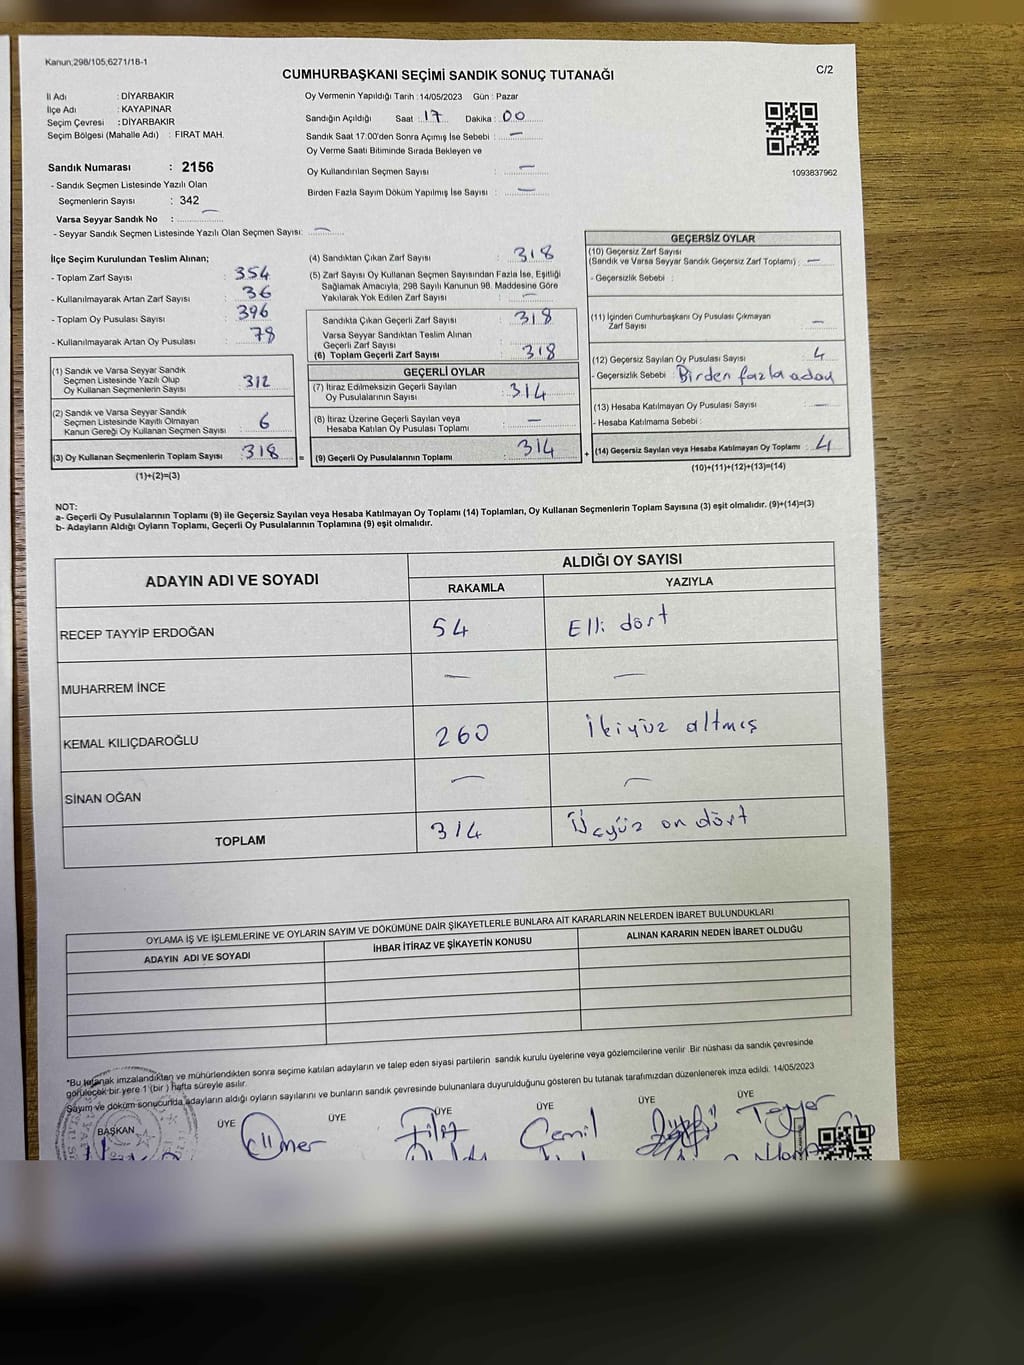 Kanun,298/105,6271/18-1
CUMHURBAŞKANI SEÇİMİ SANDIK SONUÇ TUTANAĞI
C/2
İl Adı : DİYARBAKIR
İlçe Adı : KAYAPINAR
Seçim Çevresi : DİYARBAKIR
Seçim Bölgesi (Mahalle Adı) : FIRAT MAH.
Oy Vermenin Yapıldığı Tarih : 14/05/2023 Gün : Pazar
Sandığın Açıldığı Saat : 17 Dakika : 00
Sandık Saat 17:00'den Sonra Açımış İse Sebebi : —
Oy Verme Saati Bitiminde Sırada Bekleyen ve
Oy Kullandırılan Seçmen Sayısı : —
Birden Fazla Sayım Döküm Yapılmış İse Sayısı : —
1093837962
Sandık Numarası : 2156
- Sandık Seçmen Listesinde Yazılı Olan
Seçmenlerin Sayısı : 342
Varsa Seyyar Sandık No : —
- Seyyar Sandık Seçmen Listesinde Yazılı Olan Seçmen Sayısı: —
İlçe Seçim Kurulundan Teslim Alınan;
- Toplam Zarf Sayısı : 354
- Kullanılmayarak Artan Zarf Sayısı : 36
- Toplam Oy Pusulası Sayısı : 396
- Kullanılmayarak Artan Oy Pusulası : 78
(1) Sandık ve Varsa Seyyar Sandık
Seçmen Listesinde Yazılı Olup
Oy Kullanan Seçmenlerin Sayısı : 312
(2) Sandık ve Varsa Seyyar Sandık
Seçmen Listesinde Kayıtlı Olmayan
Kanun Gereği Oy Kullanan Seçmen Sayısı : 6
(3) Oy Kullanan Seçmenlerin Toplam Sayısı : 318
(1)+(2)=(3)
=
(4) Sandıktan Çıkan Zarf Sayısı : 318
(5) Zarf Sayısı Oy Kullanan Seçmen Sayısından Fazla İse, Eşitliği
Sağlamak Amacıyla, 298 Sayılı Kanunun 98. Maddesine Göre
Yakılarak Yok Edilen Zarf Sayısı : —
Sandıkta Çıkan Geçerli Zarf Sayısı : 318
Varsa Seyyar Sandıktan Teslim Alınan
Geçerli Zarf Sayısı :
(6) Toplam Geçerli Zarf Sayısı : 318
GEÇERLİ OYLAR
(7) İtiraz Edilmeksizin Geçerli Sayılan
Oy Pusulalarının Sayısı : 314
(8) İtiraz Üzerine Geçerli Sayılan veya
Hesaba Katılan Oy Pusulası Toplamı : —
(9) Geçerli Oy Pusulalarının Toplamı : 314
+
GEÇERSİZ OYLAR
(10) Geçersiz Zarf Sayısı
(Sandık ve Varsa Seyyar Sandık Geçersiz Zarf Toplamı) : —
- Geçersizlik Sebebi :
(11) İçinden Cumhurbaşkanı Oy Pusulası Çıkmayan
Zarf Sayısı : —
(12) Geçersiz Sayılan Oy Pusulası Sayısı : 4
- Geçersizlik Sebebi : Birden fazla aday
(13) Hesaba Katılmayan Oy Pusulası Sayısı : —
- Hesaba Katılmama Sebebi :
(14) Geçersiz Sayılan veya Hesaba Katılmayan Oy Toplamı : 4
(10)+(11)+(12)+(13)=(14)
NOT:
a- Geçerli Oy Pusulalarının Toplamı (9) ile Geçersiz Sayılan veya Hesaba Katılmayan Oy Toplamı (14) Toplamları, Oy Kullanan Seçmenlerin Toplam Sayısına (3) eşit olmalıdır. (9)+(14)=(3)
b- Adayların Aldığı Oyların Toplamı, Geçerli Oy Pusulalarının Toplamına (9) eşit olmalıdır.
ADAYIN ADI VE SOYADI
ALDIĞI OY SAYISI
RAKAMLA YAZIYLA
RECEP TAYYİP ERDOĞAN 54 Elli dört
MUHARREM İNCE — —
KEMAL KILIÇDAROĞLU 260 İkiyüz altmış
SİNAN OĞAN — —
TOPLAM 314 Üçyüz on dört
OYLAMA İŞ VE İŞLEMLERİNE VE OYLARIN SAYIM VE DÖKÜMÜNE DAİR ŞİKAYETLERLE BUNLARA AİT KARARLARIN NELERDEN İBARET BULUNDUKLARI
ADAYIN ADI VE SOYADI İHBAR İTİRAZ VE ŞİKAYETİN KONUSU ALINAN KARARIN NEDEN İBARET OLDUĞU
*Bu tutanak imzalandıktan ve mühürlendikten sonra seçime katılan adayların ve talep eden siyasi partilerin sandık kurulu üyelerine veya gözlemcilerine verilir. Bir nüshası da sandık çevresinde
görülecek bir yere 1 (bir) hafta süreyle asılır.
Sayım ve döküm sonucunda adayların aldığı oyların sayılarını ve bunların sandık çevresinde bulunanlara duyurulduğunu gösteren bu tutanak tarafımızdan düzenlenerek imza edildi. 14/05/2023
BAŞKAN ÜYE ÜYE ÜYE ÜYE ÜYE ÜYE
Ömer Filiz Cemil